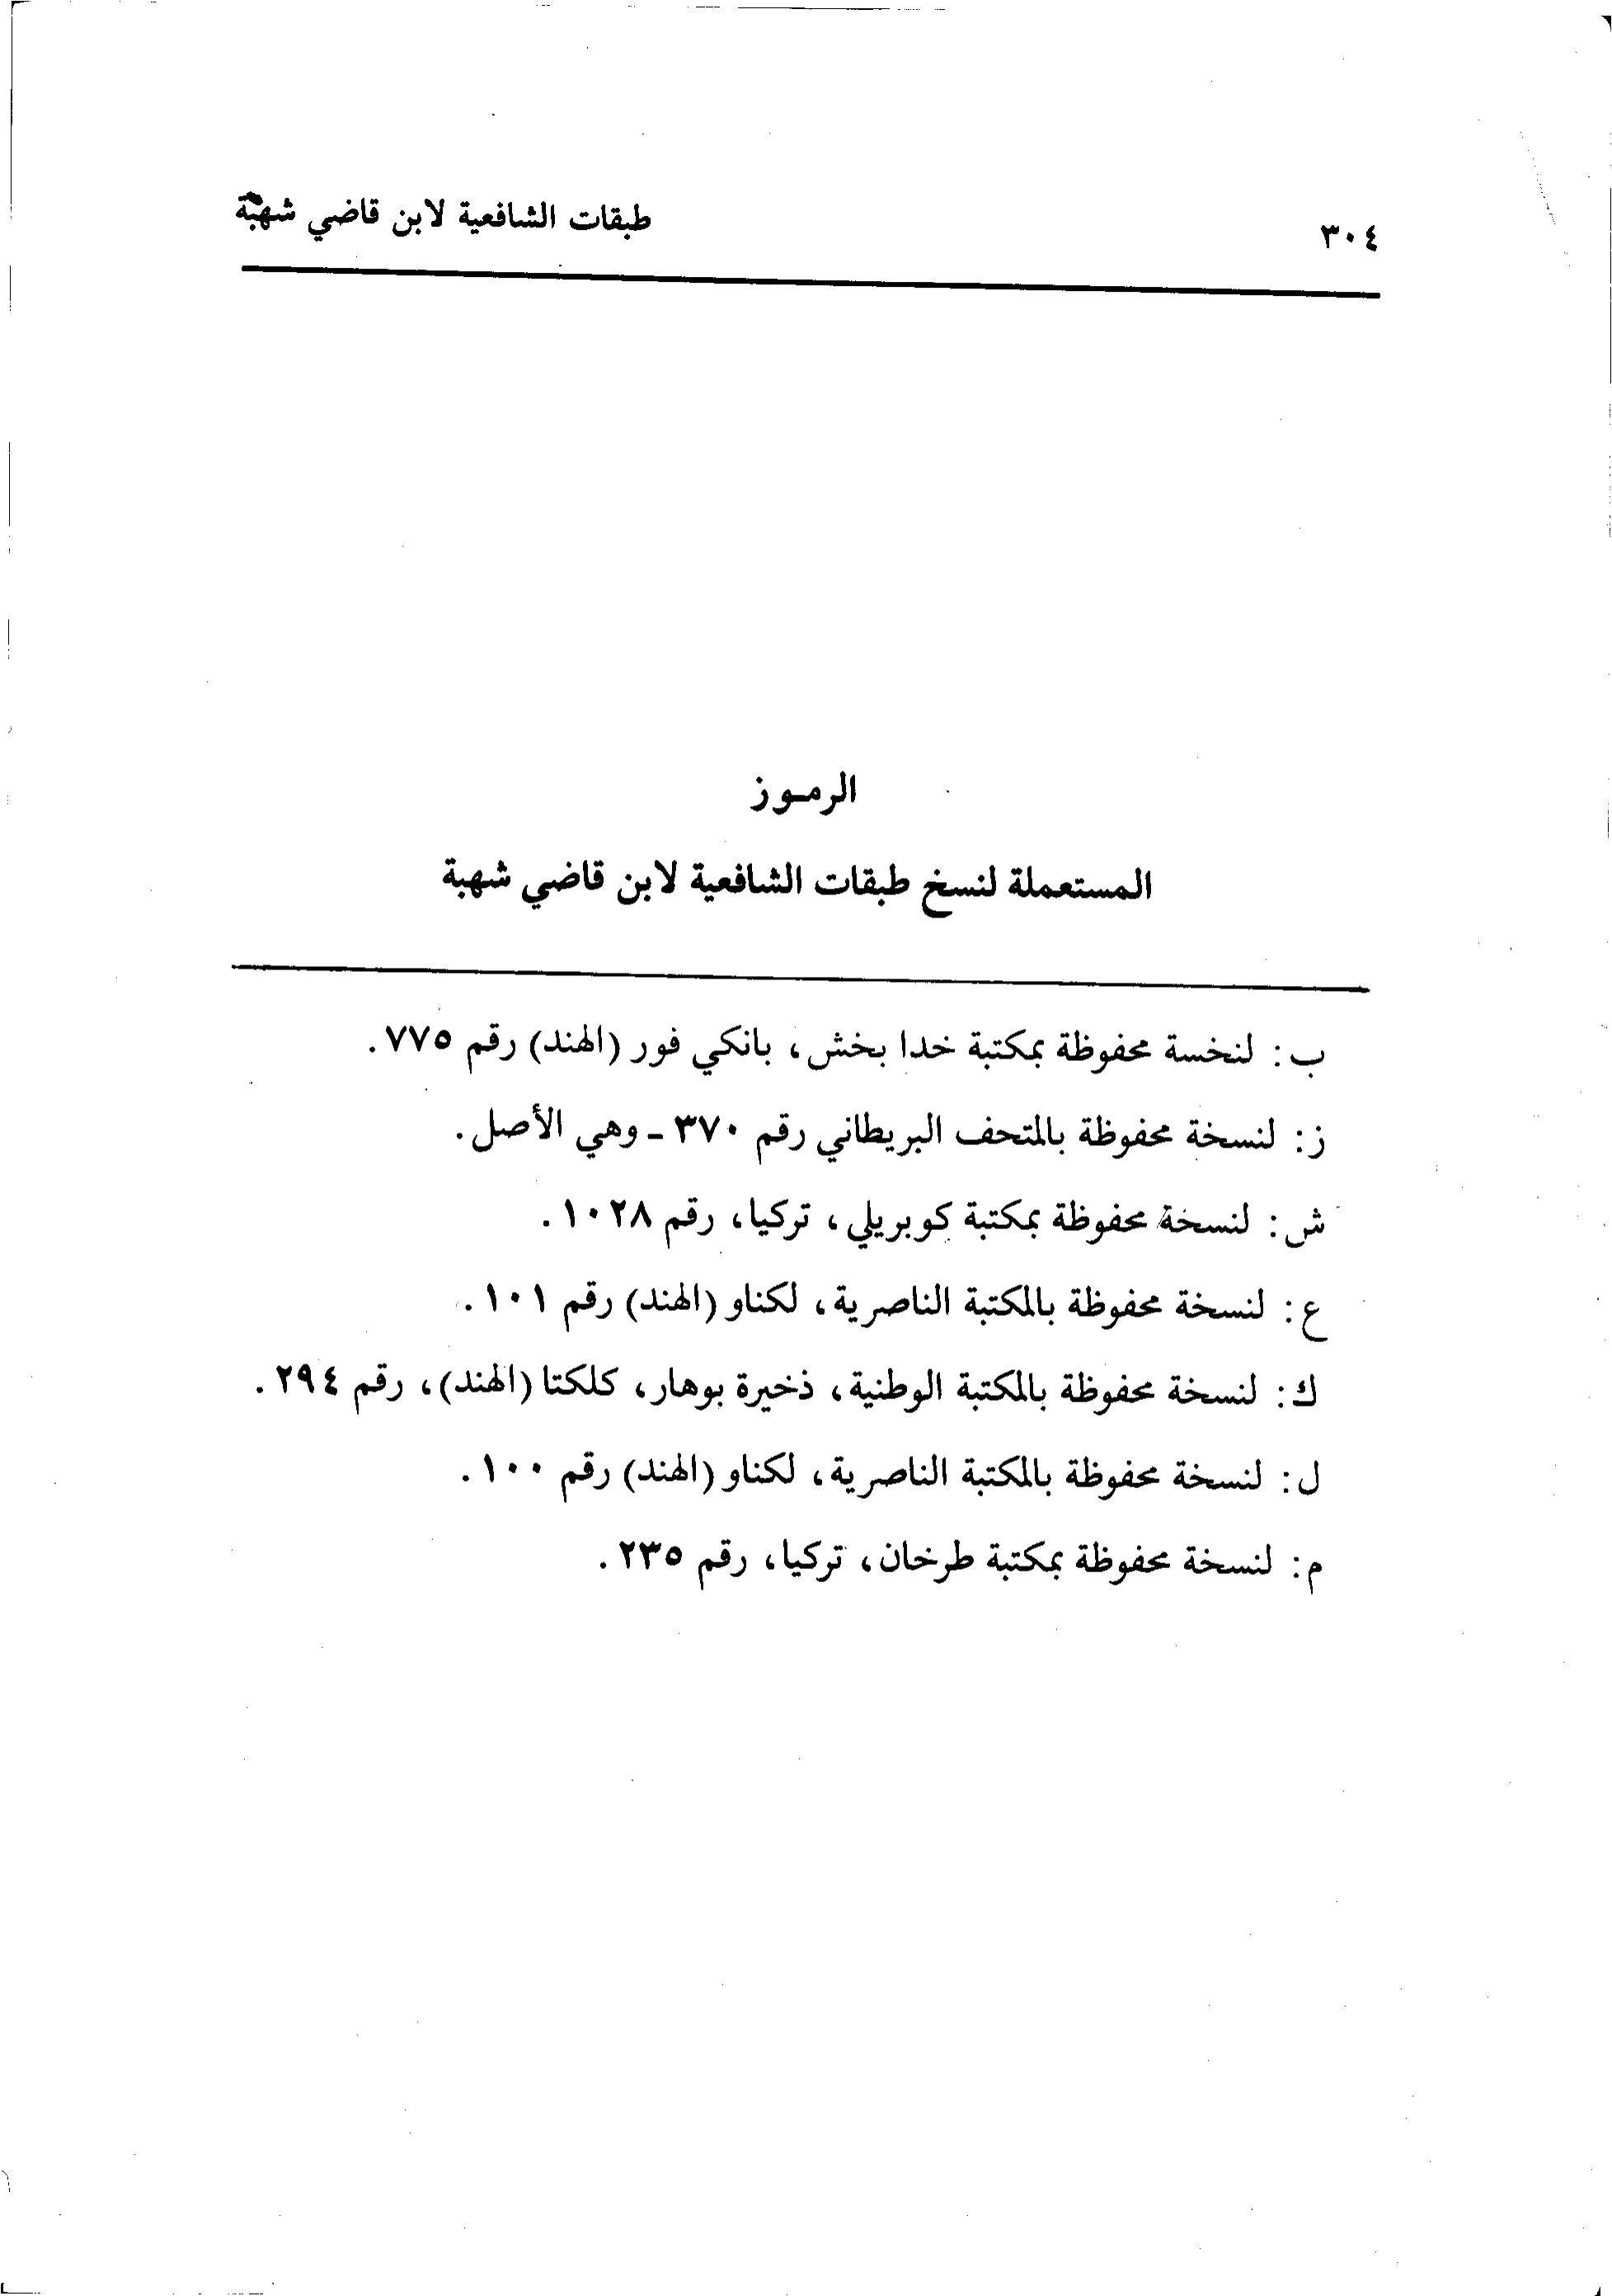 ٣٠٤
طبقات الشافعية لابن قاضي شهبة
الرموز
المستعملة لنسخ طبقات الشافعية لابن قاضي شهبة
ب: لنخسة محفوظة بمكتبة خدا بخش، بانكي فور (الهند) رقم ٧٧٥.
ز: لنسخة محفوظة بالمتحف البريطاني رقم ٣٧٠ - وهي الأصل.
ش: لنسخة محفوظة بمكتبة كوبريلي، تركيا، رقم ١٠٢٨.
ع: لنسخة محفوظة بالمكتبة الناصرية، لكناو (الهند) رقم ١٠١.
ك: لنسخة محفوظة بالمكتبة الوطنية، ذخيرة بوهار، كلكتا (الهند)، رقم ٢٩٤.
ل: لنسخة محفوظة بالمكتبة الناصرية، لكناو (الهند) رقم ١٠٠.
م: لنسخة محفوظة بمكتبة طرخان، تركيا، رقم ٢٣٥.